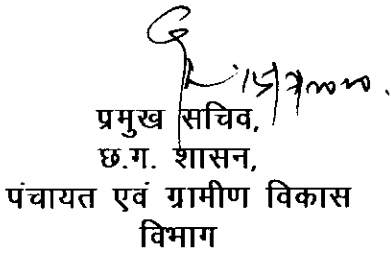 प्रमुख सचिव,
छ.ग. शासन,
पंचायत एवं ग्रामीण विकास
विभाग